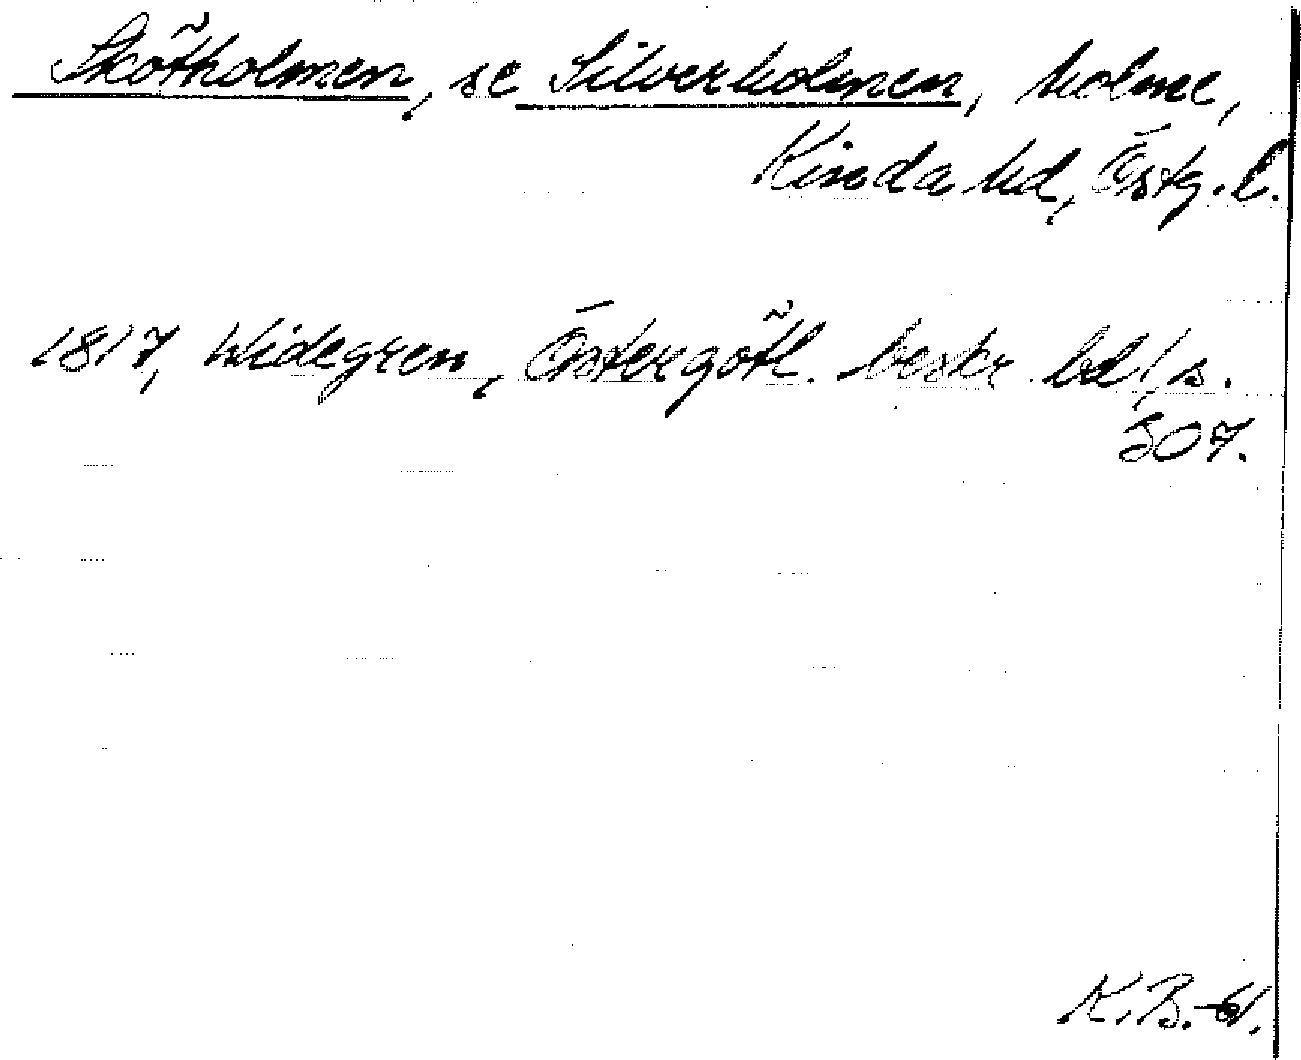 Skötholmen, se Silverholmen, holme,
Kinda hd, Östg. l.
1817, Widegren, Östergötl. beskr. bd 1, s.
307.
K.B.-61.